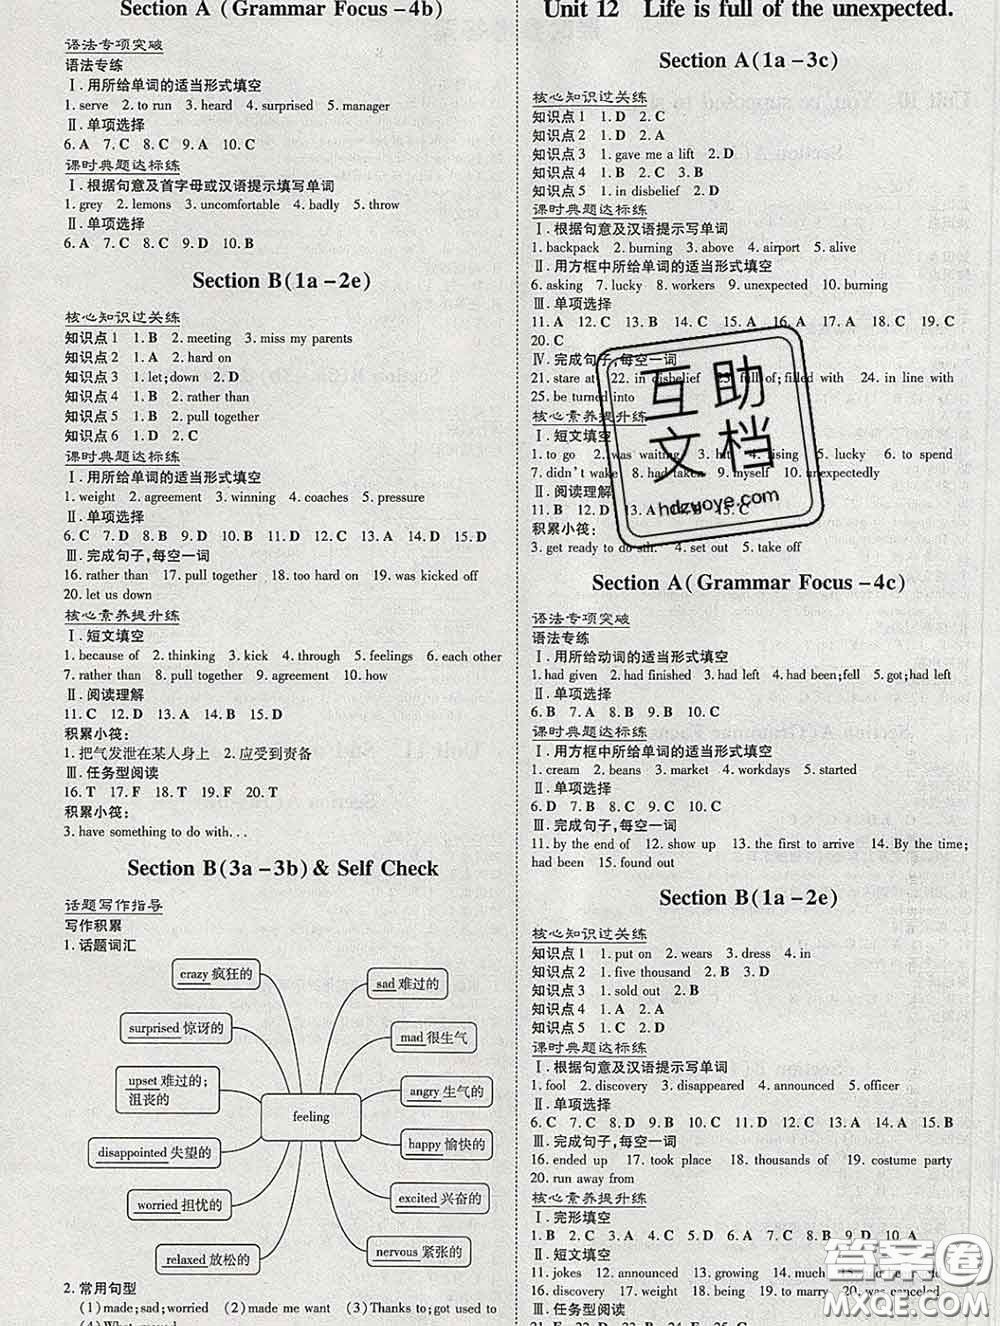 Section A (Grammar Focus－4b)
语法专项突破
语法专练
Ⅰ.用所给单词的适当形式填空
1. serve 2. to run 3. heard 4. surprised 5. manager
Ⅱ.单项选择
6. A 7. C 8. C 9. A 10. C
课时典题达标练
Ⅰ.根据句意及首字母或汉语提示填写单词
1. grey 2. lemons 3. uncomfortable 4. badly 5. throw
Ⅱ.单项选择
6. A 7. B 8. C 9. D 10. B
Section B(1a－2e)
核心知识过关练
知识点1 1. B 2. meeting 3. miss my parents
知识点2 1. A 2. hard on
知识点3 1. let;down 2. D
知识点4 1. B 2. rather than
知识点5 1. B 2. pull together
知识点6 1. D 2. C
课时典题达标练
Ⅰ.用所给单词的适当形式填空
1. weight 2. agreement 3. winning 4. coaches 5. pressure
Ⅱ.单项选择
6. C 7. D 8. C 9. D 10. B 11. D 12. A 13. C 14. D 15. D
Ⅲ.完成句子,每空一词
16. rather than 17. pull together 18. too hard on 19. was kicked off
20. let us down
核心素养提升练
Ⅰ.短文填空
1. because of 2. thinking 3. kick 4. through 5. feelings 6. each other
7. rather than 8. pull together 9. agreement 10. how
Ⅱ.阅读理解
11. C 12. D 13. A 14. B 15. D
积累小筏:
1. 把气发泄在某人身上 2. 应受到责备
Ⅲ.任务型阅读
16. T 17. F 18. T 19. F 20. T
积累小筏:
3. have something to do with...
Section B(3a－3b) & Self Check
话题写作指导
写作积累
1. 话题词汇
crazy 疯狂的
sad 难过的
surprised 惊讶的
mad 很生气
upset 难过的;
沮丧的
angry 生气的
feeling
disappointed 失望的
happy 愉快的
worried 担忧的
excited 兴奋的
relaxed 放松的
nervous 紧张的
2. 常用句型
(1)made;sad;worried (2)made me want (3)Thanks to;got used to
Unit 12 Life is full of the unexpected.
Section A(1a－3c)
核心知识过关练
知识点1 1. D 2. C
知识点2 1. D 2. A
知识点3 1. gave me a lift 2. D
知识点4 1. B 2. C 3. B
知识点5 1. in disbelief 2. D
课时典题达标练
Ⅰ.根据句意及汉语提示写单词
1. backpack 2. burning 3. above 4. airport 5. alive
Ⅱ.用方框中所给单词的适当形式填空
6. asking 7. lucky 8. workers 9. unexpected 10. burning
Ⅲ.单项选择
11. A 12. C 13. B 14. C 15. A 16. A 17. A 18. C 19. C
20. C
Ⅳ.完成句子,每空一词
21. stare at 22. in disbelief 23. full of;filled with 24. in line with
25. be turned into
核心素养提升练
Ⅰ.短文填空
1. to go 2. was waiting 3. hit 4. rising 5. lucky 6. to spend
7. didn't wake 8. had taken 9. myself 10. unexpectedly
Ⅱ.阅读理解
11. B 12. D 13. A 14. B 15. C
积累小筏:
3. get ready to do sth. 4. set out 5. take off
互助
文档
hdzuoye.com
Section A(Grammar Focus－4c)
语法专项突破
语法专练
Ⅰ.用所给动词的适当形式填空
1. had given 2. had finished 3. had left 4. had been;fell 5. got;had left
Ⅱ.单项选择
6. B 7. A 8. B 9. B 10. C
课时典题达标练
Ⅰ.用方框中所给单词的适当形式填空
1. cream 2. beans 3. market 4. workdays 5. started
Ⅱ.单项选择
6. D 7. B 8. C 9. C 10. C
Ⅲ.完成句子,每空一词
11. by the end of 12. show up 13. the first to arrive 14. By the time;
had been 15. found out
Section B(1a－2e)
核心知识过关练
知识点1 1. put on 2. wears 3. dress 4. in
知识点2 1. five thousand 2. B 3. D
知识点3 1. sold out 2. B
知识点4 1. A 2. A
知识点5 1. C 2. D
课时典题达标练
Ⅰ.根据句意及汉语提示写单词
1. fool 2. discovery 3. disappeared 4. announced 5. officer
Ⅱ.单项选择
6. D 7. B 8. C 9. B 10. C 11. D 12. B 13. C 14. A 15. B
Ⅲ.完成句子,每空一词
16. ended up 17. took place 18. thousands of 19. costume party
20. run away from
核心素养提升练
Ⅰ.完形填空
1. B 2. C 3. C 4. B 5. D 6. A 7. B 8. C 9. D 10. A
Ⅱ.短文填空
11. jokes 12. announced 13. growing 14. much 15.
16. discovery 17. weight 18. being 19. to marry 20. was canceled
Ⅲ.任务型阅读
答案圈
MXQE.COM